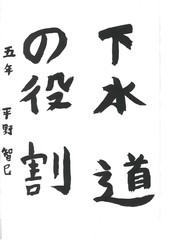 下水道
の役割
五年 平野智巳